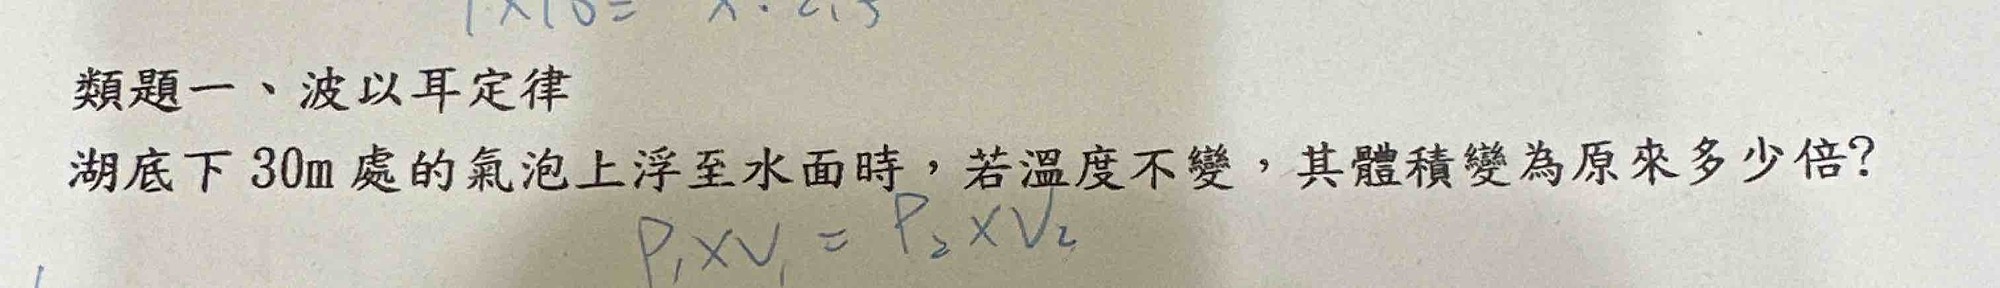 1×10= x. 2.5
類題一、波以耳定律
湖底下 30m 處的氣泡上浮至水面時，若溫度不變，其體積變為原來多少倍?
P₁×V₁ = P₂×V₂